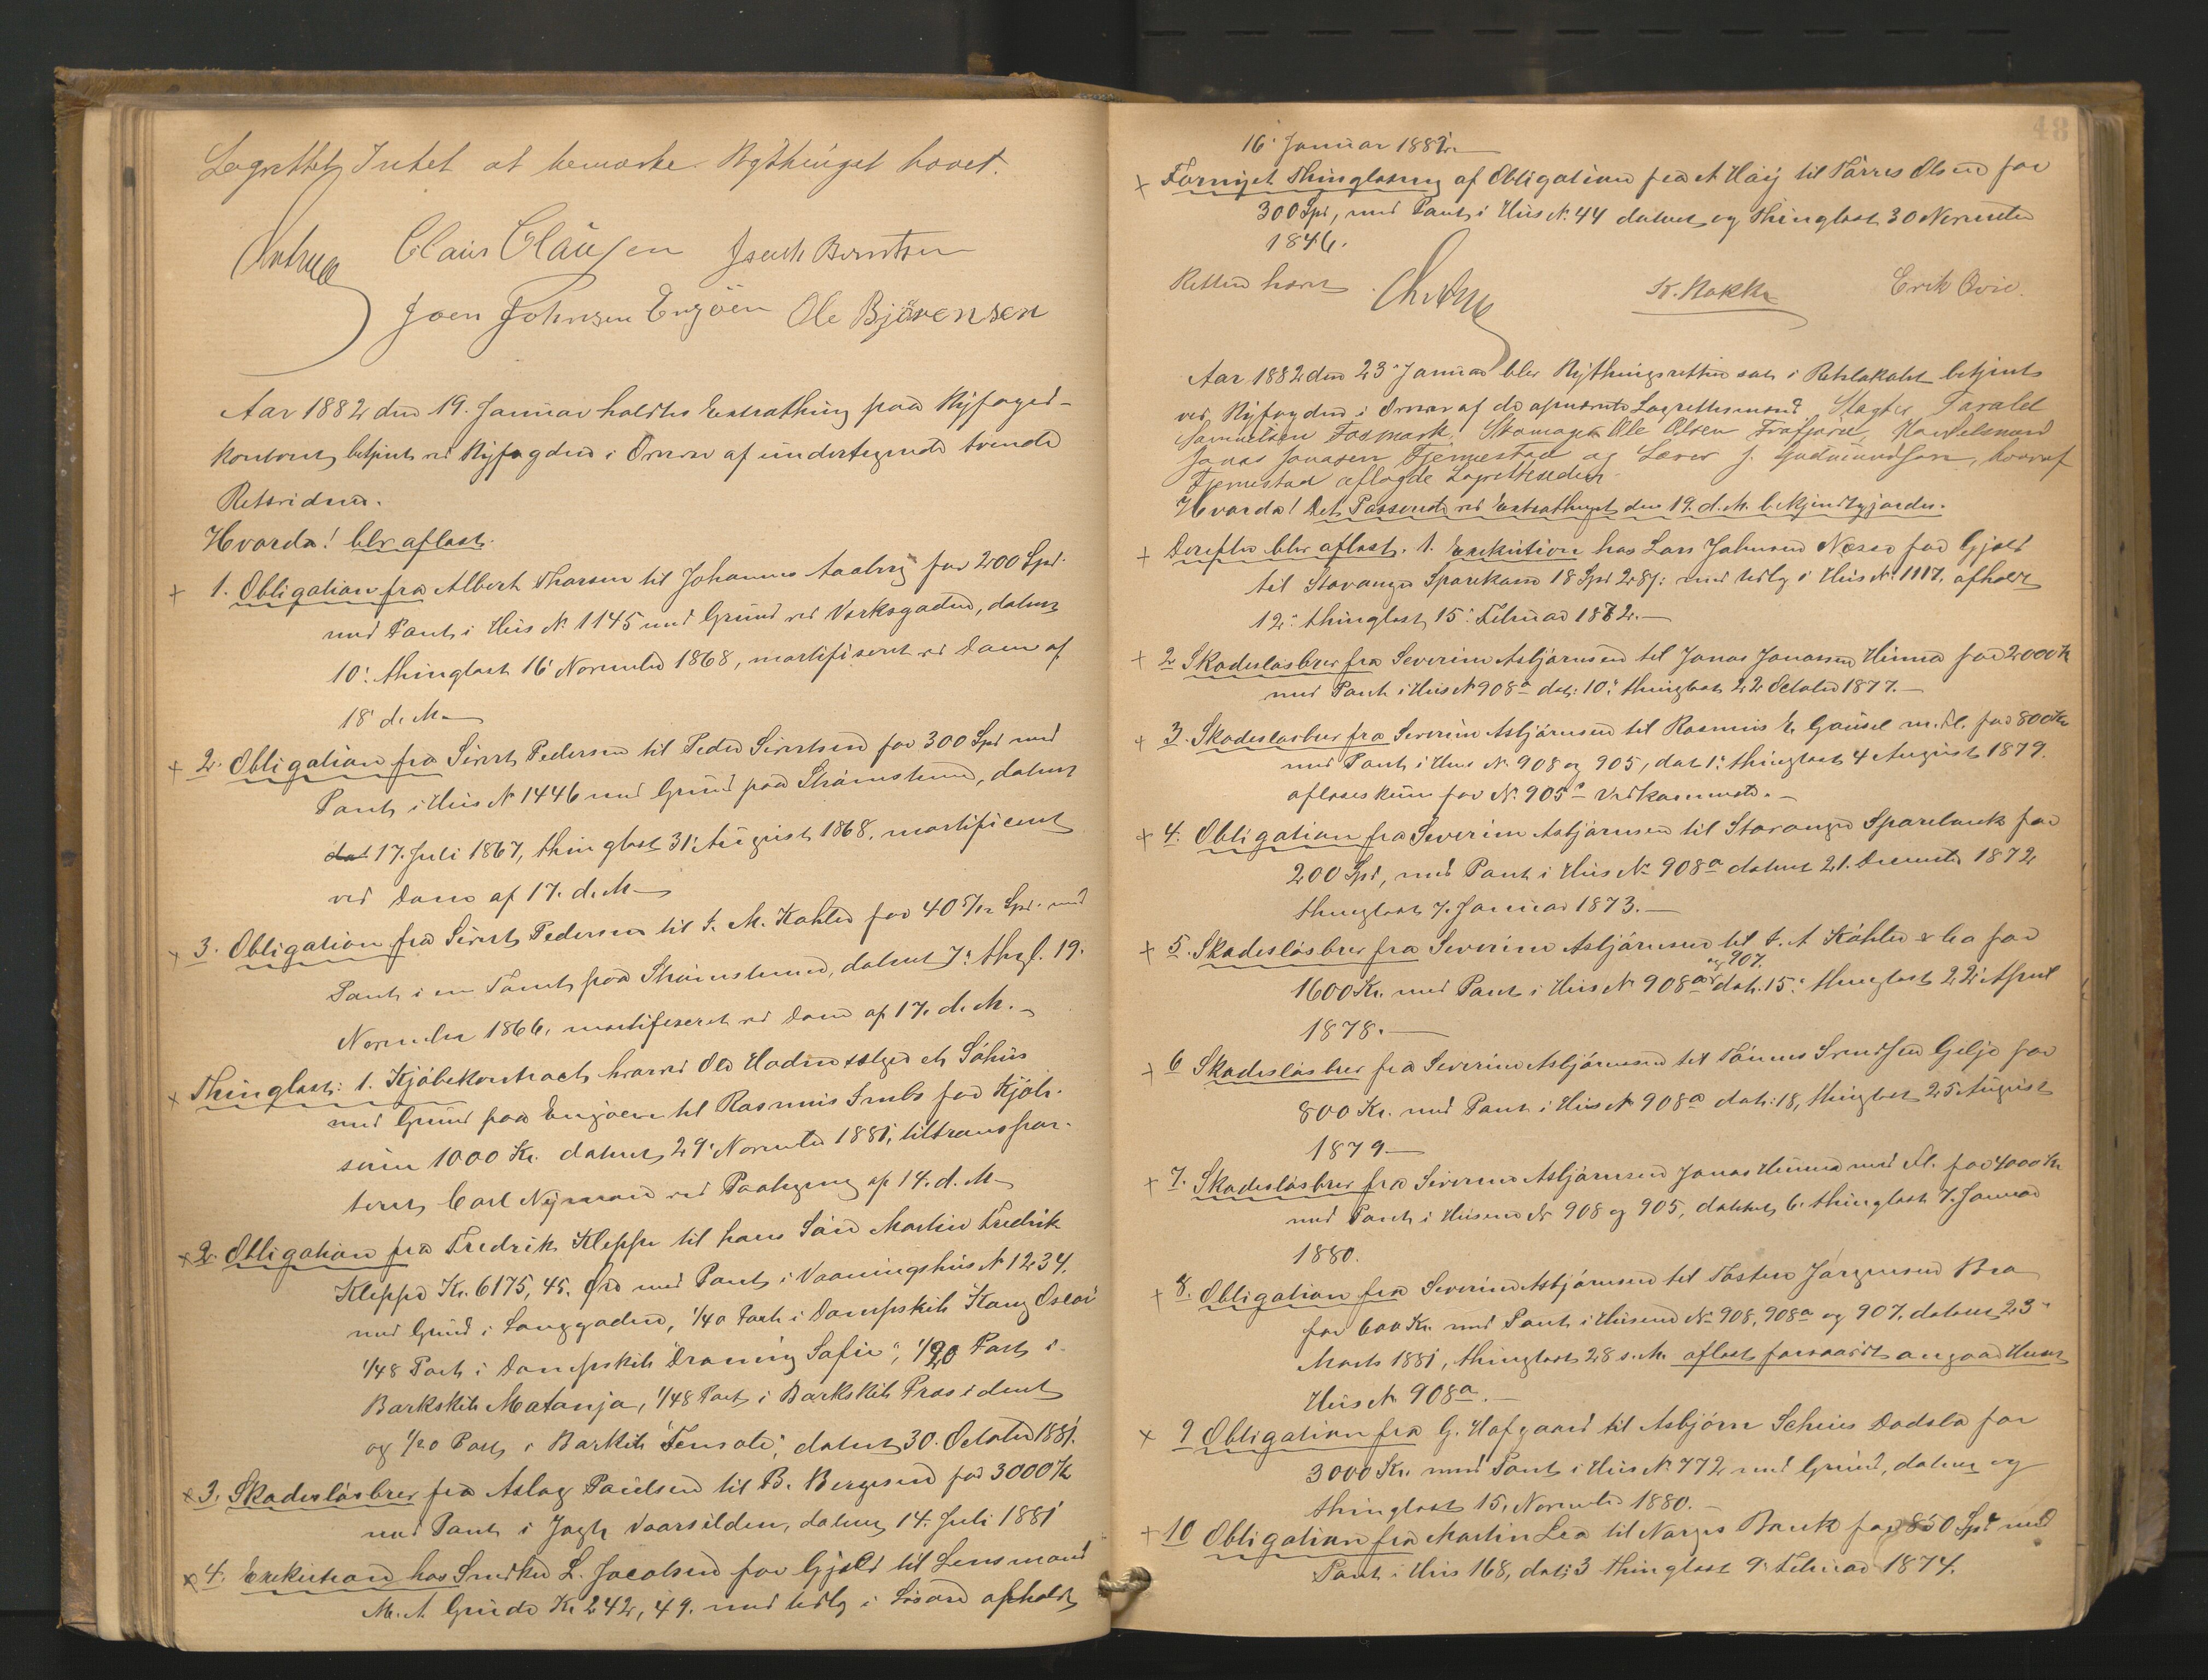 Lagrettet Intet at bemærke. Bythinget hævet.
Claus Clausen Jsach Berntsen
Joen Johnsen Engöen Ole Björensen
Aar 1882 den 19. Januar holdtes Extrathing paa Byfoged-
kontoret, betjent ved Byfogden i Orren af undertegnede tvende
Retsvidner.
Hvorda! blev aflæst.
1. Obligation fra Albert Thorsen til Johannes Aaberg for 200 Spd.
med Pant i Hus N. 1145 med Grund ved Værksgaden, dateret
10: thinglæst 16 November 1868, mortifiseret ved Dom af
18' d. M.
2. Obligation fra Sivert Pedersen til Peder Sivertsen for 300 Spd med
Pant i Hus N 1446 med Grund paa Strømsteen, dateret
dat 17. Juli 1867, thinglæst 31' August 1868. mortificeret
ved Dom af 17. d. M.
3. Obligation fra Sivert Pedersen til K. M. Køhler for 40 5/12 Spd. med
Pant i en Tomt paa Strømsteen, dateret 7: thgl. 19.
November 1866, mortifiseret ved Dom af 17. d. M.
Thinglæst: 1. Kjøbekontract hvorved Ole Hadne sælger et Søhus
med Grund paa Engøen til Rasmus Smebs for Kjøb-
sum 1000 Kr. dateret 29' November 1881, tiltranspor-
teret Carl Nyman ved Paategning af 14. d. M.
2. Obligation fra Fredrik Kleppe til hans Søn Martin Fredrik
Kleppe Kr. 6175, 45. Øre med Pant i Vaaningshus N 1234.
med Grund i Langgaden, 1/40 Part i Dampskib Kong Oscar
1/48 Part i Dampskib "Droning Sofie", 1/20 Part i
Barkskib Matanja, 1/48 Part i Barkskib President
og 1/20 Part i Barkskib dateret 30. October 1881.
3. Skadesløsbrev fra Aslag Paulsen til B. Bergesen for 3000 Kr
med Pant i Jagt Vaarsilden, dateret 14. Juli 1881
4. Exekution hos Snedker L. Jacobsen for Gjæld til Lensmand
M. A. Grude Kr 242, 49. med Udlæg i Løsøre afholdt
48
16' Januar 1882.
Fornyet Thinglæsning af Obligation fra A Høy til Tørres Olsen for
300 Spd, med Pant i Hus N. 44 dateret og thinglæst 30 November
1846.
Retten hævet. K. Kokke Erik Qvie.
Aar 1882 den 23' Januar blev Bythingsretten sat i Retslokalet betjent
ved Byfogden i Orren af de opnævnte Lagrettesmænd Slagter Tarald
Samuelsen Fosmark, Skomager Ole Olsen Frafjord, Handelsmand
Jonas Jonasen Tjemestad og Lærer J. Gudmundsen, hvoraf
Tjemestad aflagde Lagretteseden
Hvorda! Det Passerede ved Extrathinget den 19. d. M. bekjendtgjordes.
Derefter blev aflæst. 1. Exekution hos Lars Johnsen Næsse for Gjæld
til Stavanger Sparekasse 18 Spd 28 s: med Udlæg i Hus N. 1117, afholdt
12: thinglæst 15: Februar 1872.
2 Skadesløsbrev fra Severin Asbjørnsen til Jonas Jonassen Hinna for 2000 Kr
med Pant i Hus N 908a dat: 10: thinglæst 22 October 1877.
3. Skadesløsbrev fra Severin Asbjørnsen til Rasmus E. Gausel m. Fl. for 800 Kr
med Pant i Hus N. 908 og 905, dat 1: thinglæst 4 August 1879.
aflæses kun for N. 905a Vedkommende.
4. Obligation fra Severin Asbjørnsen til Stavanger Sparebank for
200 Spd, med Pant i Hus N. 908a dateret 21. December 1872
thinglæst 7. Januar 1873.
5. Skadesløsbrev fra Severin Asbjørnsen til K. A Køhler & Co for
og 907.
1600 Kr. med Pant i Hus N 908a dat. 15: thinglæst 22' April
1878.
6 Skadesløsbrev fra Severin Asbjørnsen til Tønnes Svendsen Gilje for
800 Kr. med Pant i Hus N 908a dat: 18, thinglæst 25 August
1879
7. Skadesløsbrev fra Severin Asbjørnsen Jonas Hinna med Fl. for 4000 Kr
med Pant i Husene N 908 og 905, dateret 6. thinglæst 7. Januar
1880.
8. Obligation fra Severin Asbjørnsen til Tosten Jørgensen Bra
for 600 Kr. med Pant i Husene N. 908, 908a og 907, dateret 23'
Marts 1881, thinglæst 28 s. M. aflæst forsaavidt angaar
Hus N. 908a.
9 Obligation fra G. Hafgaard til Asbjørn Schius Dødsbo for
3000 Kr. med Pant i Hus N. 772 med Grund, dateret og
thinglæst 15. November 1880.
10 Obligation fra Martin Lea til Norges Bank for 850 Spd med
Pant i Hus 168, dat: 3 thinglæst 9: Februar 1874.